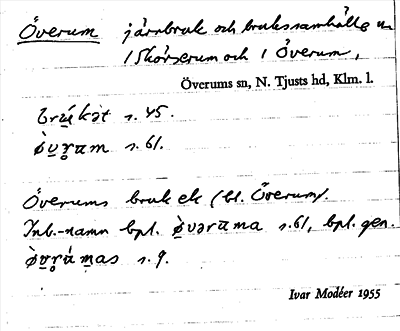 Överum järnbruk och brukssamhälle m
i Skörserum och i Överum,
Överums sn, N. Tjusts hd, Klm. l.
brú̱kət s. 45.
ø̀v̱r̥am s. 61.
Överums bruk ek (bl. Överum).
Inb.-namn bpl. ø̀vərama s. 61, bpl. gen.
ø̀v̱r̥ámas s. 9.
Ivar Modéer 1955